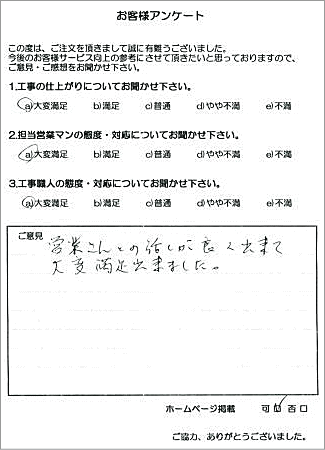 お客様アンケート
この度は、ご注文を頂きまして誠に有難うございました。
今後のお客様サービス向上の参考にさせて頂きたいと思っておりますので、
ご意見・ご感想をお聞かせ下さい。
1.工事の仕上がりについてお聞かせ下さい。
a)大変満足 b)満足 c)普通 d)やや不満 e)不満
2.担当営業マンの態度・対応についてお聞かせ下さい。
a)大変満足 b)満足 c)普通 d)やや不満 e)不満
3.工事職人の態度・対応についてお聞かせ下さい。
a)大変満足 b)満足 c)普通 d)やや不満 e)不満
ご意見
営業さんとの話しが良く出来て
大変満足出来ました。
ホームページ掲載 可 否
ご協力、ありがとうございました。